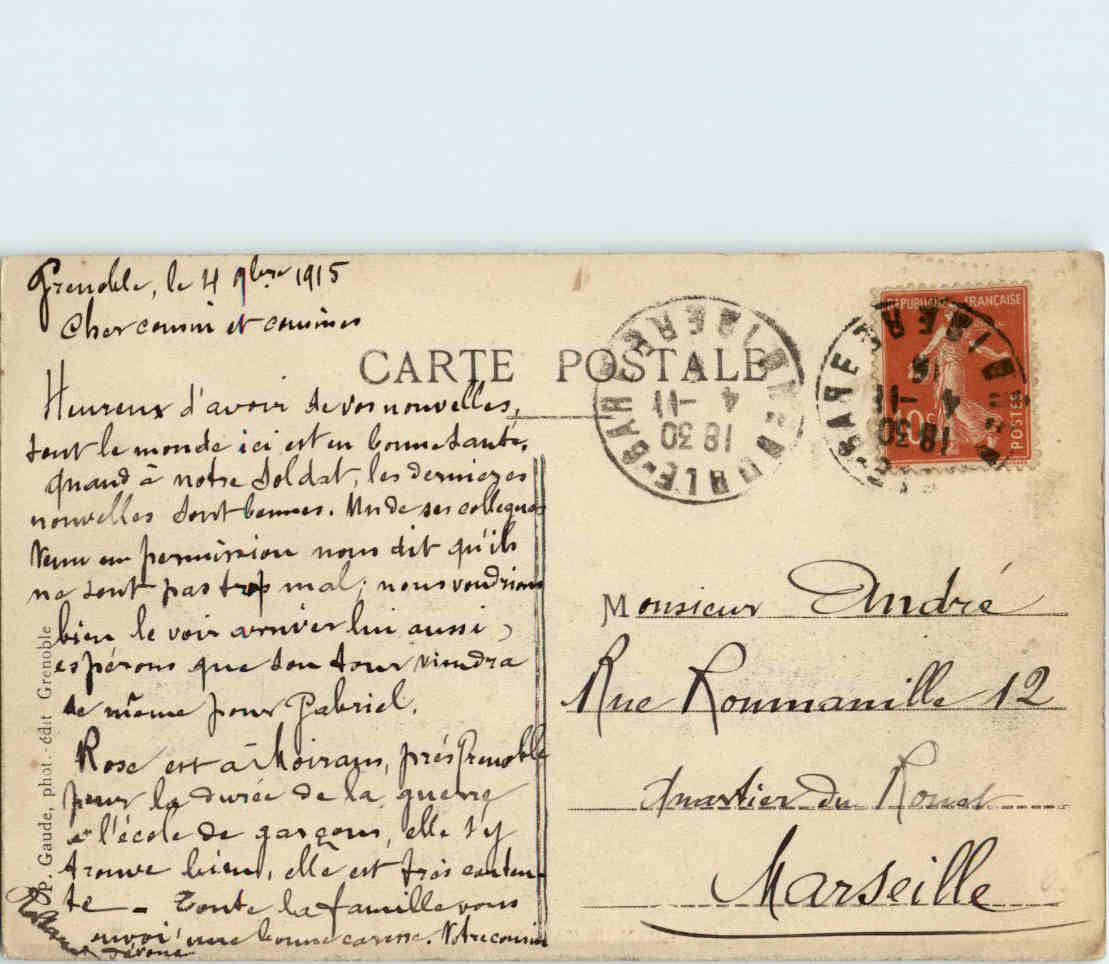 Grenoble, le 4 9bre 1915
Cher cousin et cousines
CARTE POSTALE
Heureux d'avoir de vos nouvelles,
tout le monde ici est en bonne santé,
quand à notre soldat, les dernieres
nouvelles sont bonnes. Un de ses collegues
venu en permission nous dit qu'ils
ne sont pas trop mal; nous voudrions
bien le voir arriver lui aussi,
espérons que son tour viendra
de même pour Gabriel.
Rose est à Moirans, près Grenoble
pour la durée de la guerre
à l'école de garçons, elle s'y
trouve bien, elle est très conten-
te - Toute la famille vous
envoi' une bonne caresse. Votre cousin
P. Gaude, phot.-édit Grenoble
GRENOBLE-GARE ISERE
18 30
4 -11
15
GRENOBLE-GARE ISERE
18 30
4 -11
15
REPUBLIQUE FRANÇAISE
10c
POSTES
Monsieur André
Rue Roumanille 12
Quartier du Rouet
Marseille